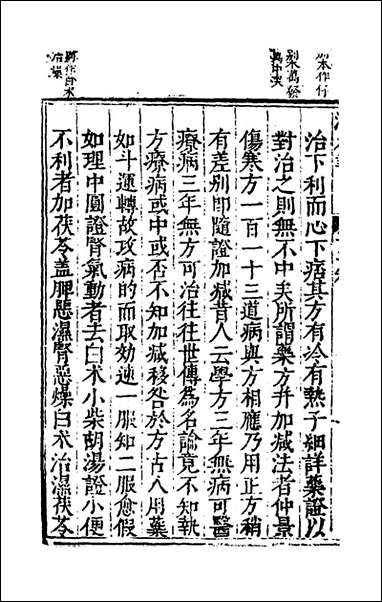 治下利而心下痞其方有冷有熱子細詳藥證以
對治之則無不中矣所謂藥方并加減法者仲景
傷寒方一百一十三道病與方相應乃用正方稍
有差别即隨證加減昔人云學方三年無病可醫
療病三年無方可治往往世傳為名論竟不知執
方療病或中或否不知加減移咎於方古人用藥
如斗運轉故攻病的而取効速一服知二服愈假
如理中圓證腎氣動者去白术小柴胡湯證小便
不利者加茯苓蓋脾惡濕腎惡燥白术治濕茯苓